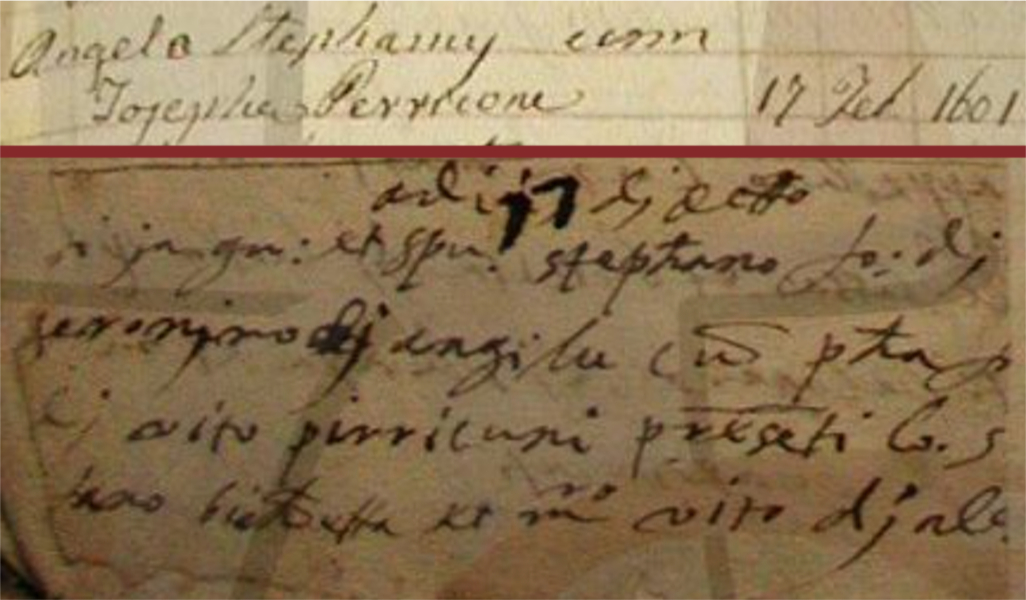 Angelo Stephany cum
Josepha Perricone 17 Feb 1601
adi 17 dj detto
jn gn: et spu: stephano fo: dj
jeronimo dj angilu cū pta
dj vito pirricuni preseti lo. s
tano et mro vito dj ale